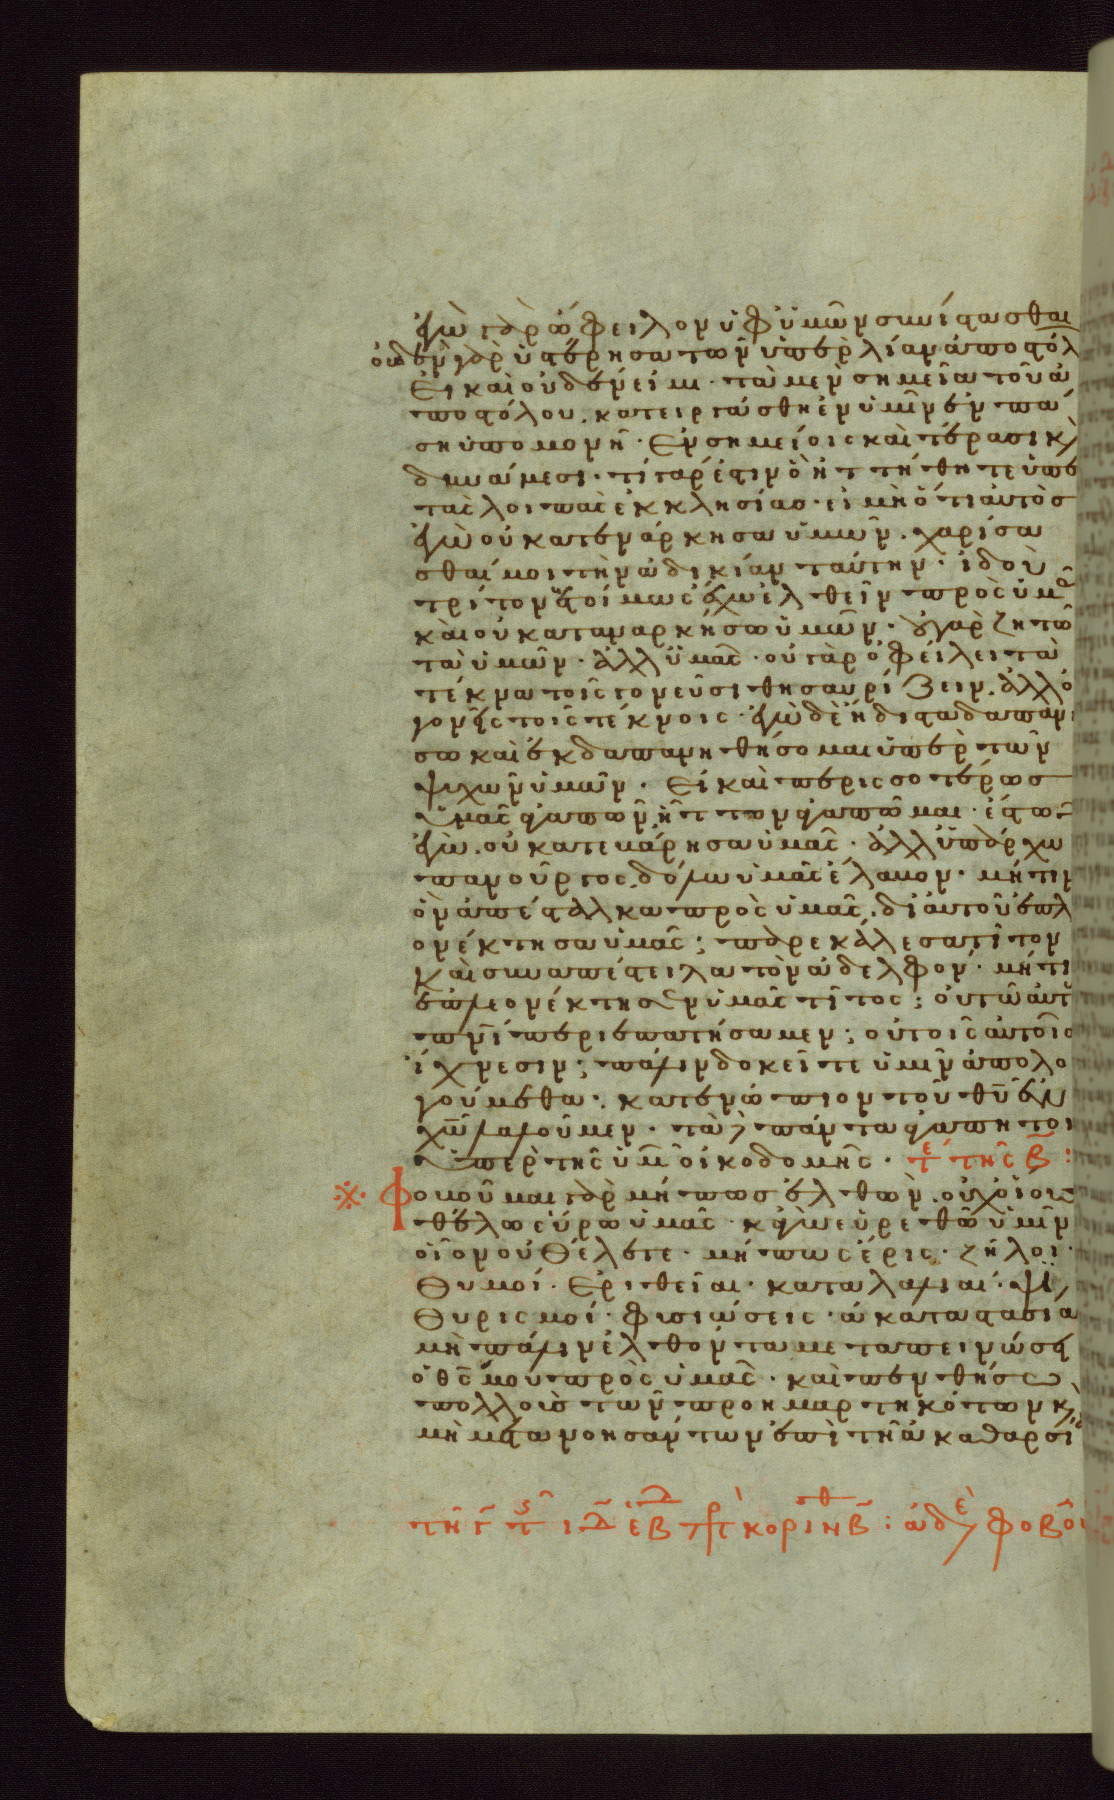 ἐγὼ γὰρ ὤφειλον ὑφ ὑμῶν συνίστασθαι
οὐδὲν γὰρ ὑστέρησα τῶν ὑπὲρ λίαν ἀποστόλ
εἰ καὶ οὐδέν εἰμι · τὰ μὲν σημεῖα τοῦ ἀ
ποστόλου κατειργάσθη ἐν ὑμῖν ἐν πά
ση ὑπομονῆ · ἐν σημείοις καὶ τέρασι κ
δυνάμεσι · τί γάρ ἐστιν ὃ ἡττήθητε ὑπὲ
τὰς λοιπὰς ἐκκλησίας · εἰ μὴ ὅτι αὐτὸς
ἐγὼ οὐ κατενάρκησα ὑμῶν · χαρίσα
σθαί μοι τὴν ἀδικίαν ταύτην · ἰδοὺ
τρίτον ἑτοίμως ἔχω ἐλθεῖν πρὸς ὑμᾶς
καὶ οὐ καταναρκήσω ὑμῶν · οὐ γὰρ ζητῶ
τὰ ὑμῶν · ἀλλ ὑμᾶς · οὐ γὰρ ὀφείλει τὰ
τέκνα τοῖς γονεῦσι θησαυρίζειν · ἀλλ ὁ
γονεῖς τοῖς τέκνοις · ἐγὼ δὲ ἥδιστα δαπαν
σω καὶ ἐκδαπανηθήσομαι ὑπὲρ τῶν
ψυχῶν ὑμῶν · εἰ καὶ περισσοτέρως
ὑμᾶς ἀγαπῶν ἧττον ἀγαπῶμαι · ἔστω
ἐγὼ οὐ κατεβάρησα ὑμᾶς · ἀλλ ὑπάρχω
πανοῦργος δόλω ὑμᾶς ἔλαβον · μή τιν
ὃν ἀπέσταλκα πρὸς ὑμᾶς δι αὐτοῦ ἐπλ
ονέκτησα ὑμᾶς ; παρεκάλεσα τίτον
καὶ συναπέστειλα τὸν ἀδελφόν · μή τι
ἐπλεονέκτησεν ὑμᾶς τίτος ; οὐ τῶ αὐτῶ
πνι περιεπατήσαμεν ; οὐ τοῖς αὐτοῖς
ἴχνεσιν ; πάλιν δοκεῖτε ὑμῖν ἀπολο
γούμεθα · κατενώπιον τοῦ θυ ἐν
χω λαλοῦμεν · τὰ δὲ πάντα ἀγαπητοὶ
ὑπὲρ τῆς ὑμῶν οἰκοδομῆς · τε τῆς β :
※ Φοβοῦμαι γὰρ μή πως ἐλθὼν οὐχ οἵους
θέλω εὕρω ὑμᾶς · κἀγὼ εὑρεθῶ ὑμῖν
οἷον οὐ θέλετε · μή πως ἔρις · ζῆλοι ·
θυμοί · ἐριθεῖαι · καταλαλιαί · ψι
θυρισμοί · φυσιώσεις · ἀκαταστασία
μὴ πάλιν ἐλθόντα με ταπεινώσει
ὁ θς μου πρὸς ὑμᾶς · καὶ πενθήσω
πολλοὺς τῶν προημαρτηκότων κ
μὴ μετανοησάντων ἐπὶ τῆ ἀκαθαρσί
κορινθ β : ἀδε φοβοῦ